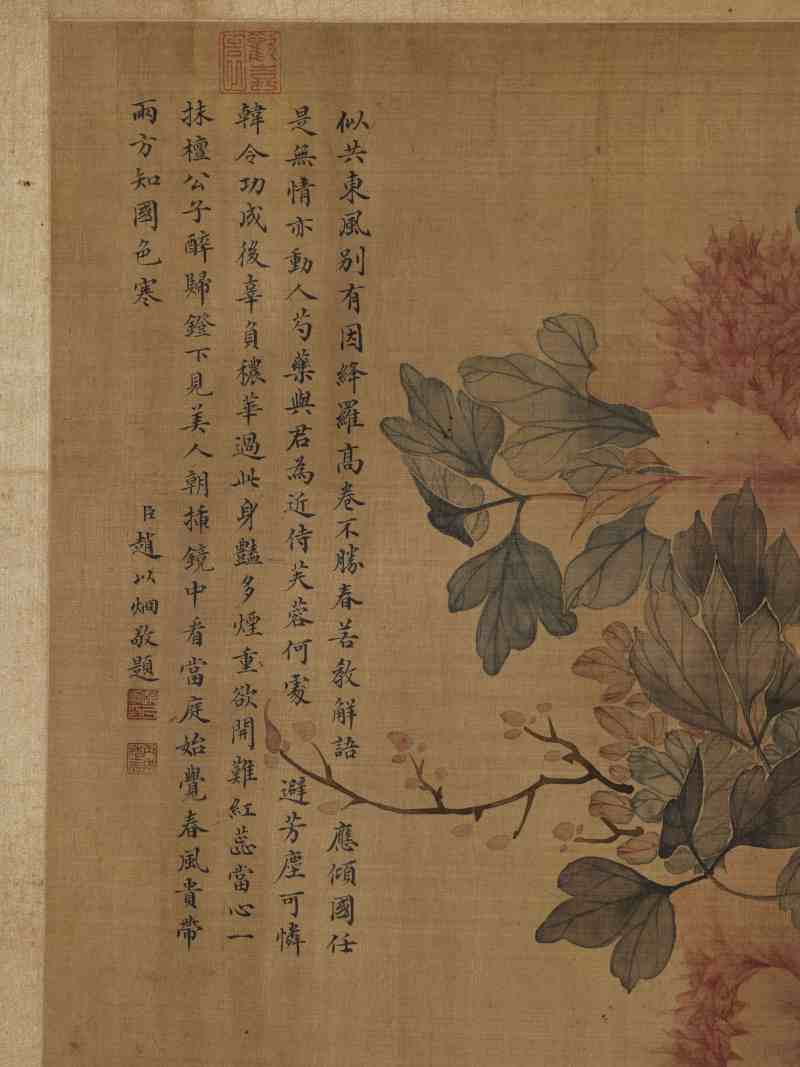 似共東風別有因絳羅高卷不勝春若教解語應傾國任
是無情亦動人芍藥與君為近侍芙蓉何處避芳塵可憐
韓令功成後辜負穠華過此身豔多煙重欲開難紅蕊當心一
抹檀公子醉歸鐙下見美人朝插鏡中看當庭始覺春風貴帶
雨方知國色寒
臣趙以烱敬題